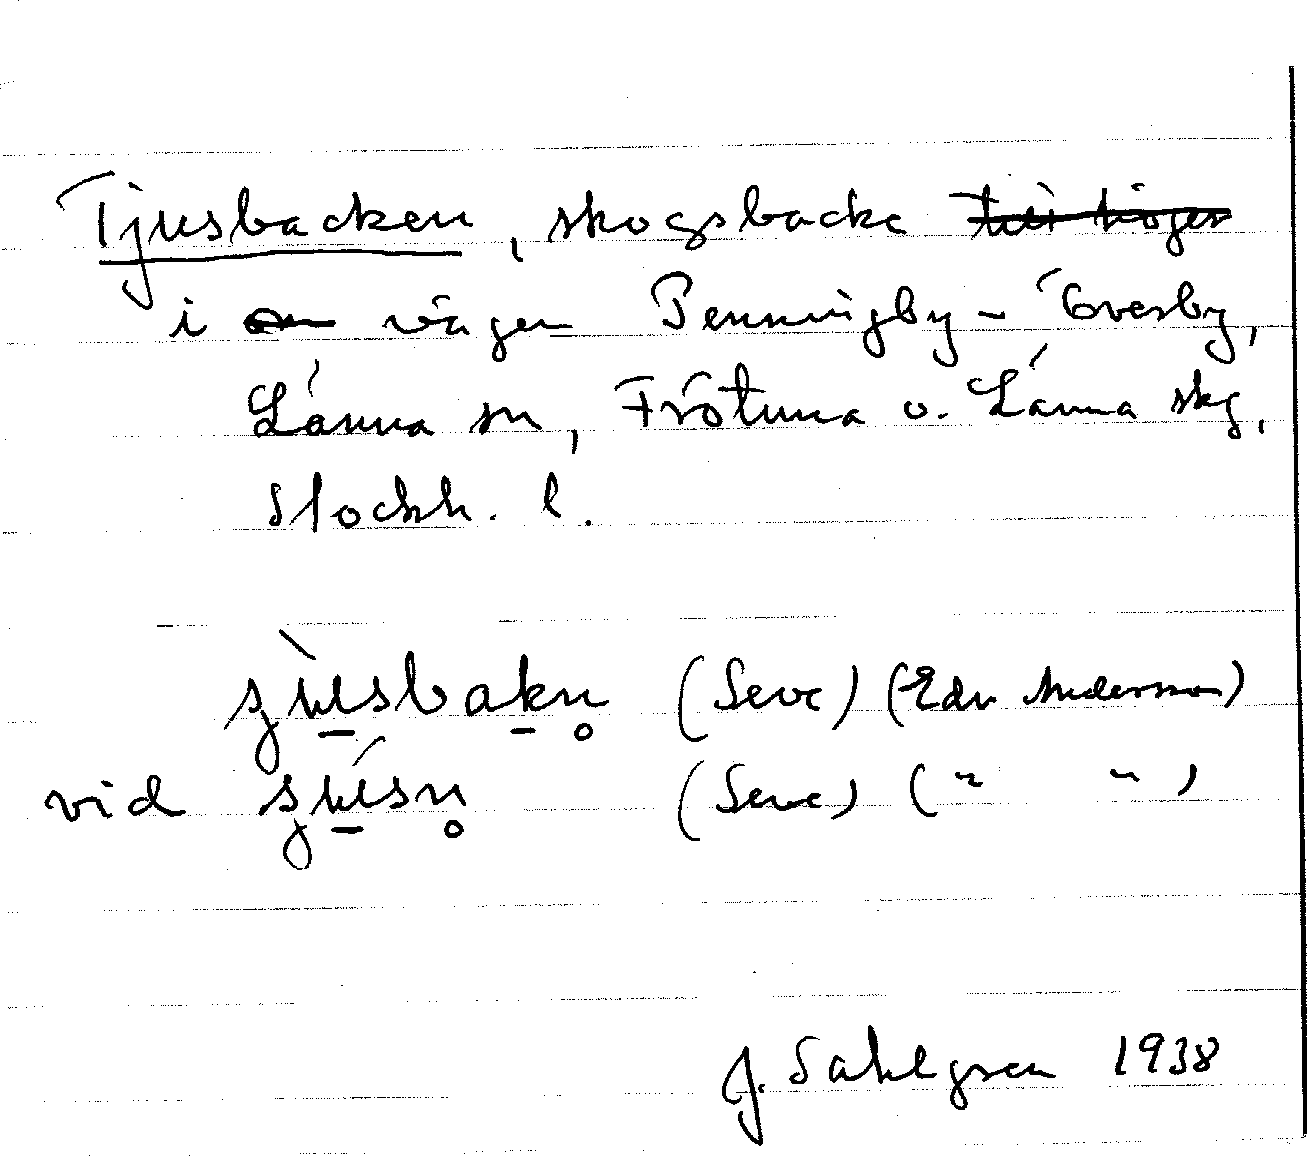 Tjusbacken, skogsbacke till höger
i om vägen Penningby - Överby,
Länna sn, Frötuna o. Länna skg,
Stockh. l.
(Seve) (Edv Anderson)
vid (Seve) ( " " )
J. Sahlgren 1938